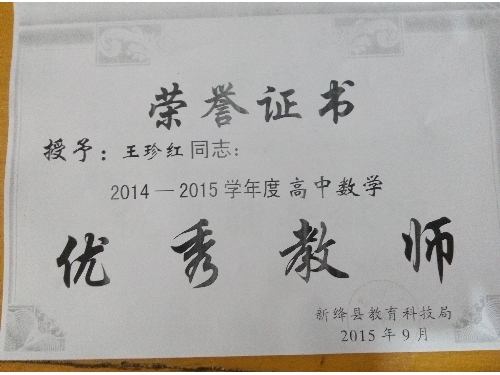 荣誉证书
授予：王珍红同志：
2014—2015学年度高中数学
优秀教师
新绛县教育科技局
2015年9月